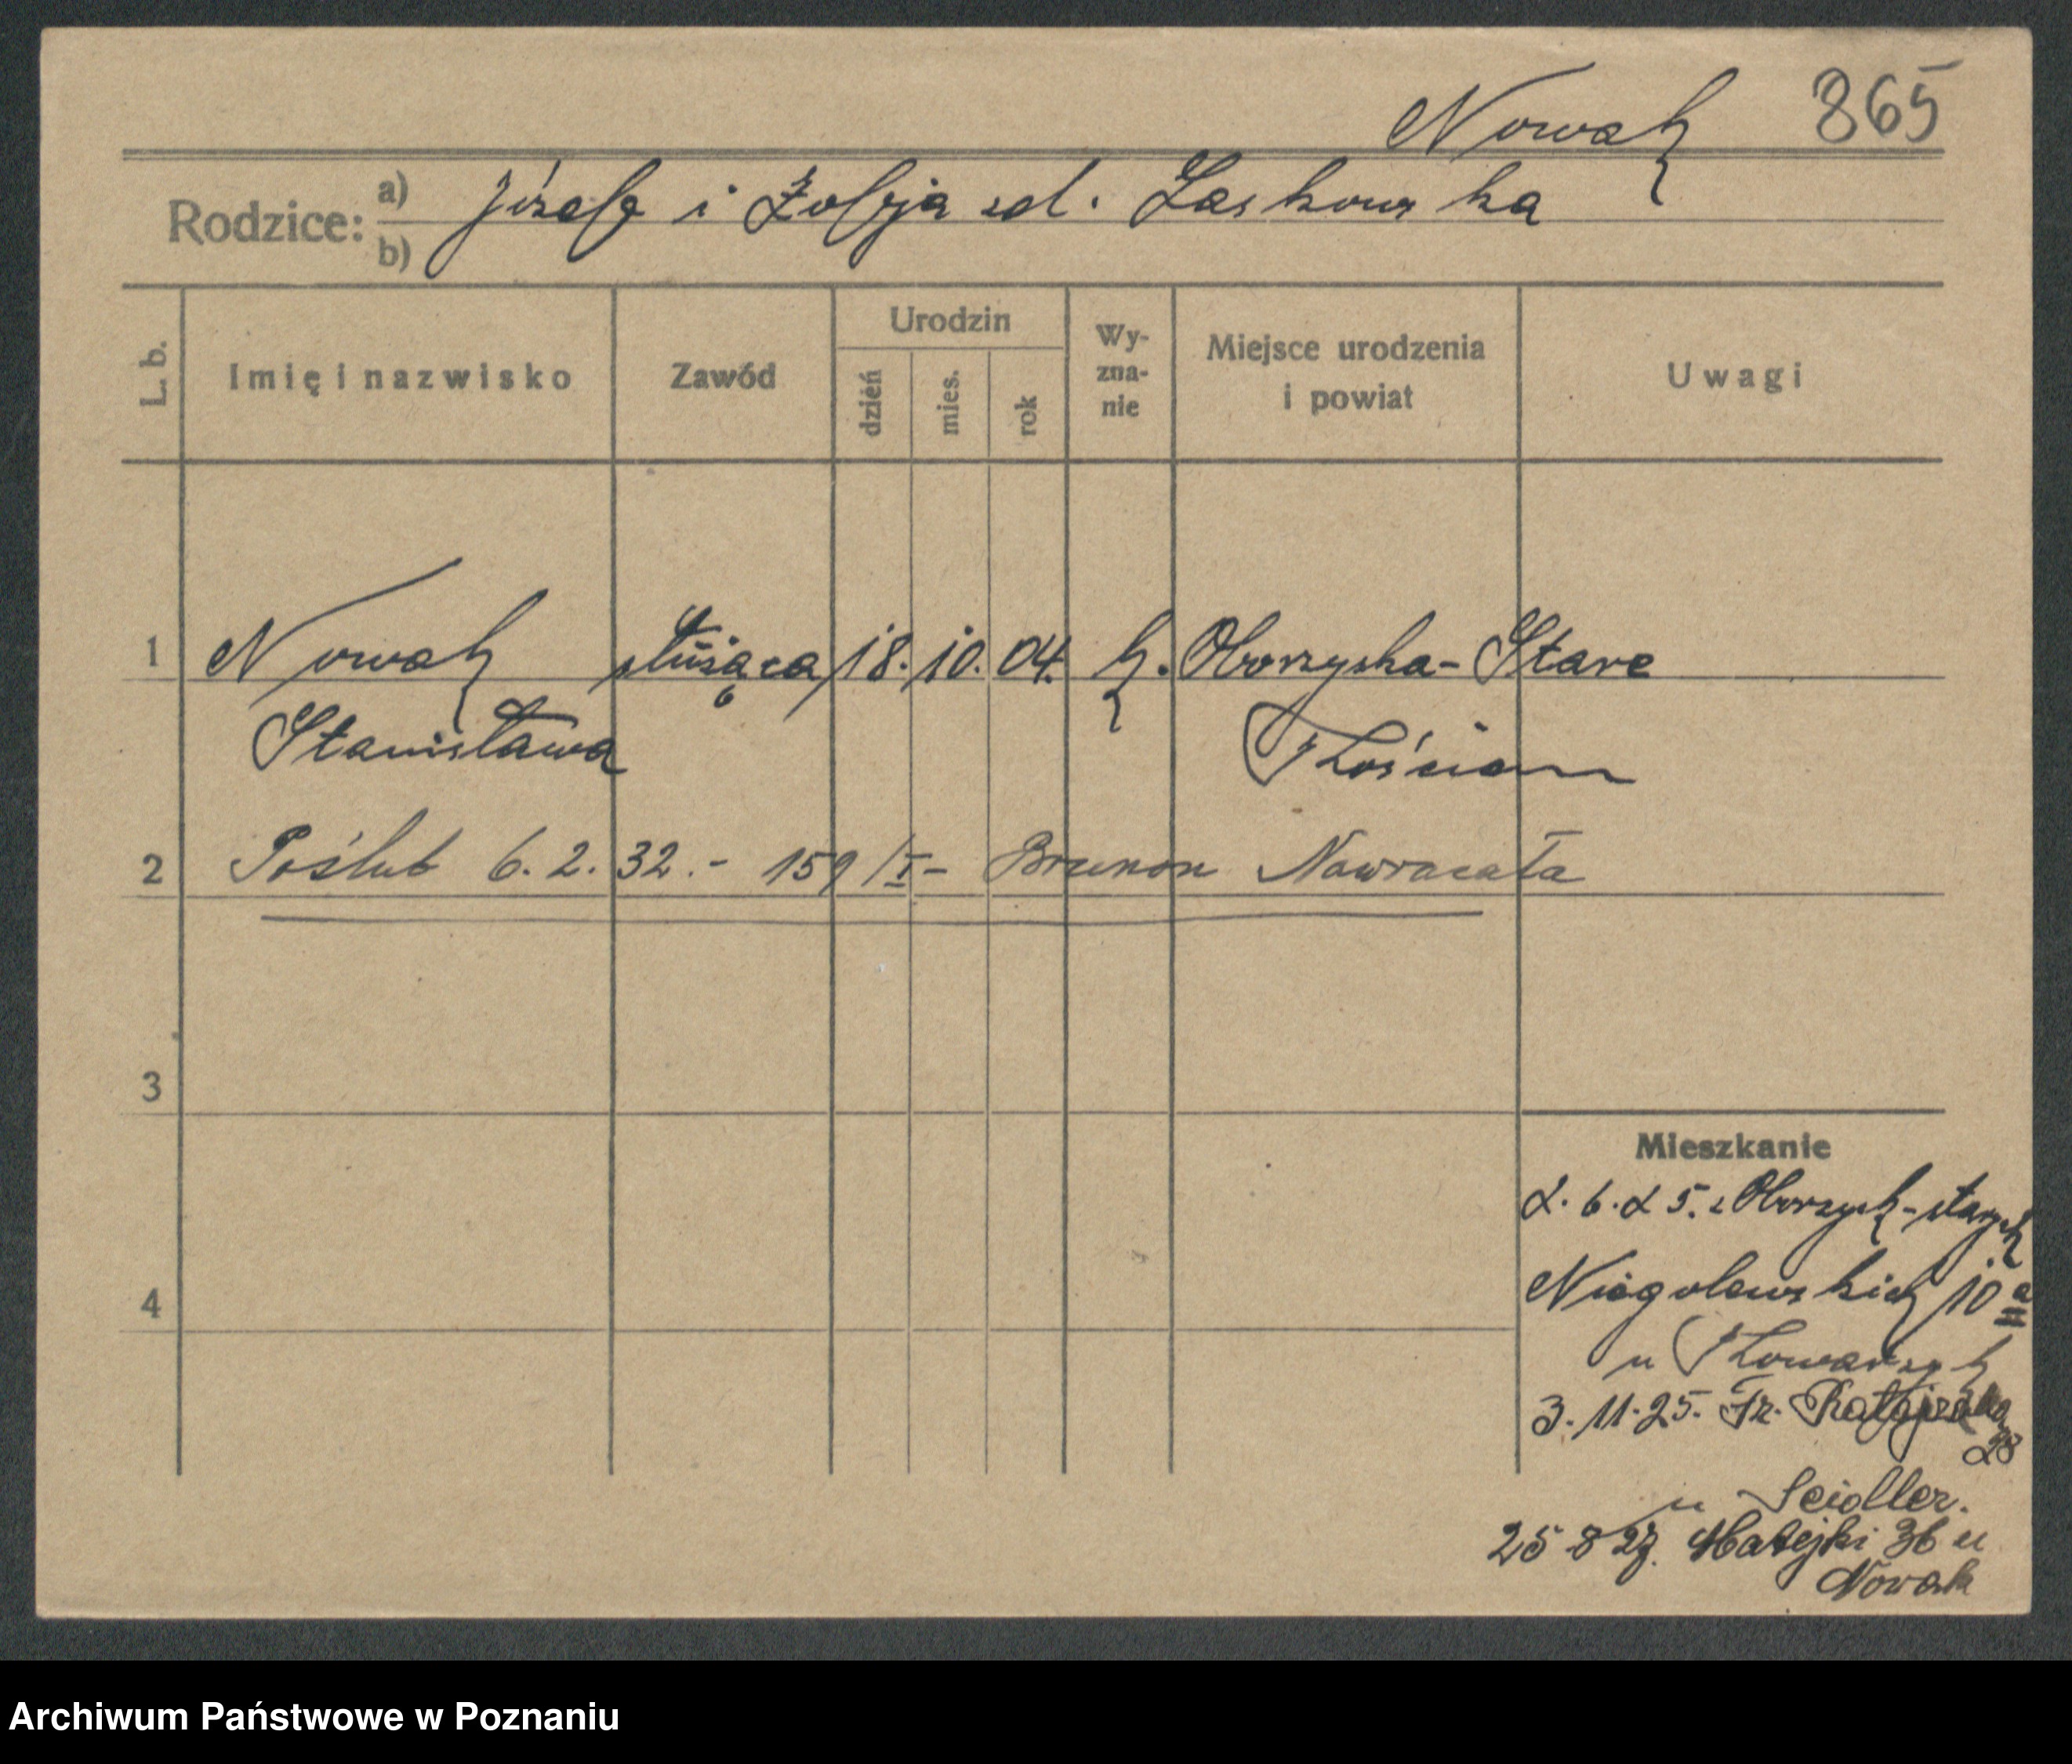 Nowak 865
Rodzice: a) Józef i Zofja zd. Laskowska
b)
L. b. Imię i nazwisko Zawód Urodzin dzień mies. rok Wy-zna-nie Miejsce urodzenia i powiat Uwagi
1 Nowak służąca 18. 10. 04. k. Oborzyska-Stare
Stanisława Kościan
2 Poślub 6. 2. 32. - 159/I - Brunon Nawracała
3
Mieszkanie
2. 6. 25. z Oborzysk-starych
4 Niegolewskich 10 a
u Kowarzyk
3. 11. 25. Fr. Ratajczaka
28
u Seidler.
25 8 27. Matejki 36 u
Nowak
Archiwum Państwowe w Poznaniu